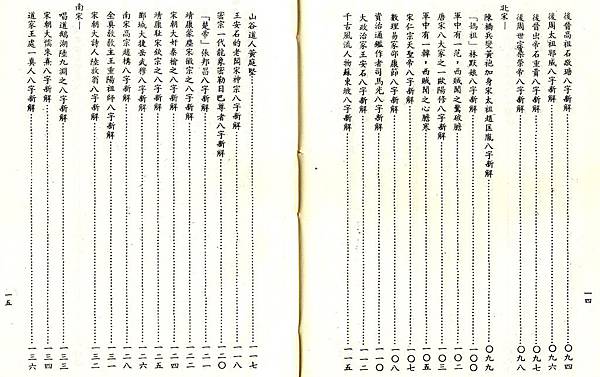 後晉高祖石敬瑭八字新解……〇九四
後周太祖郭威八字新解……〇九五
後晉出帝石重貴八字新解……〇九六
後周世宗柴榮帝八字新解……〇九八
北宋—
陳橋兵變黃袍加身宋太祖趙匡胤八字新解……〇九九
「媽祖」林默娘八字新解……一〇〇
軍中有一范,西賊聞之驚破膽……一〇二
唐宋八大家之一歐陽修八字新解……一〇三
軍中有一韓,西賊聞之心膽寒……一〇五
宋仁宗天聖帝八字新解……一〇六
數理易家邵康節八字新解……一〇八
資治通鑑作者司馬光八字新解……一一〇
大政治家王安石八字新解……一一二
千古風流人物蘇東坡八字新解……一一五
一四
山谷道人黃庭堅……一一七
王安石的老闆宋神宗八字新解……一一八
密宗一代龍象密勒日巴尊者八字新解……一二〇
「楚帝」張邦昌八字新解……一二一
靖康蒙塵宋徽宗之八字新解……一二二
宋朝大奸秦檜之八字新解……一二四
靖康恥宋欽宗之八字新解……一二五
鄂城大捷岳武穆八字新解……一二六
南宋高宗趙構八字新解……一二八
全真教教主王重陽祖師八字新解……一三一
宋朝大詩人陸放翁八字新解……一三二
南宋—
唱道鵝湖陸九淵之八字新解……一三三
宋朝大儒朱熹八字新解……一三四
道家王處一真人八字新解……一三六
一五